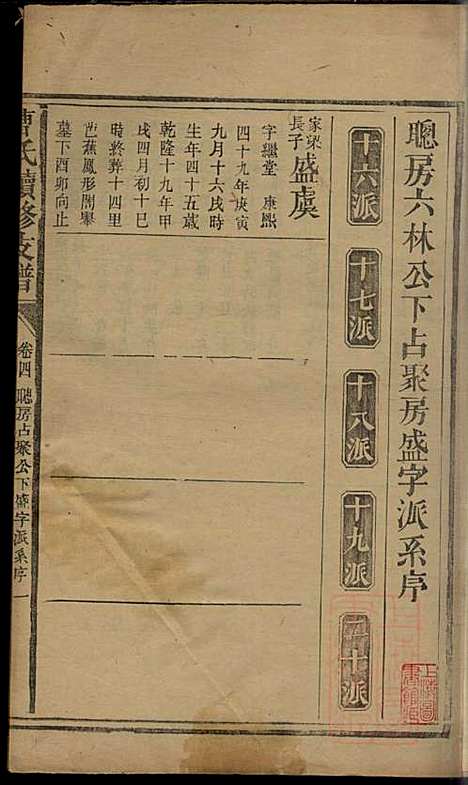 聰房六林公下占聚房盛字派系序
十六派
十七派
十八派
十九派
二十派
家望
長子
盛虞
字繼堂　康熙
四十九年庚寅
九月十六戌時
生年四十五歲
乾隆十九年甲
戌四月初十巳
時終葬十四里
芭蕉鳳形閤塋
墓下酉卯向止
曹氏續修支譜
卷四
聰房占聚公下盛字派系序
一